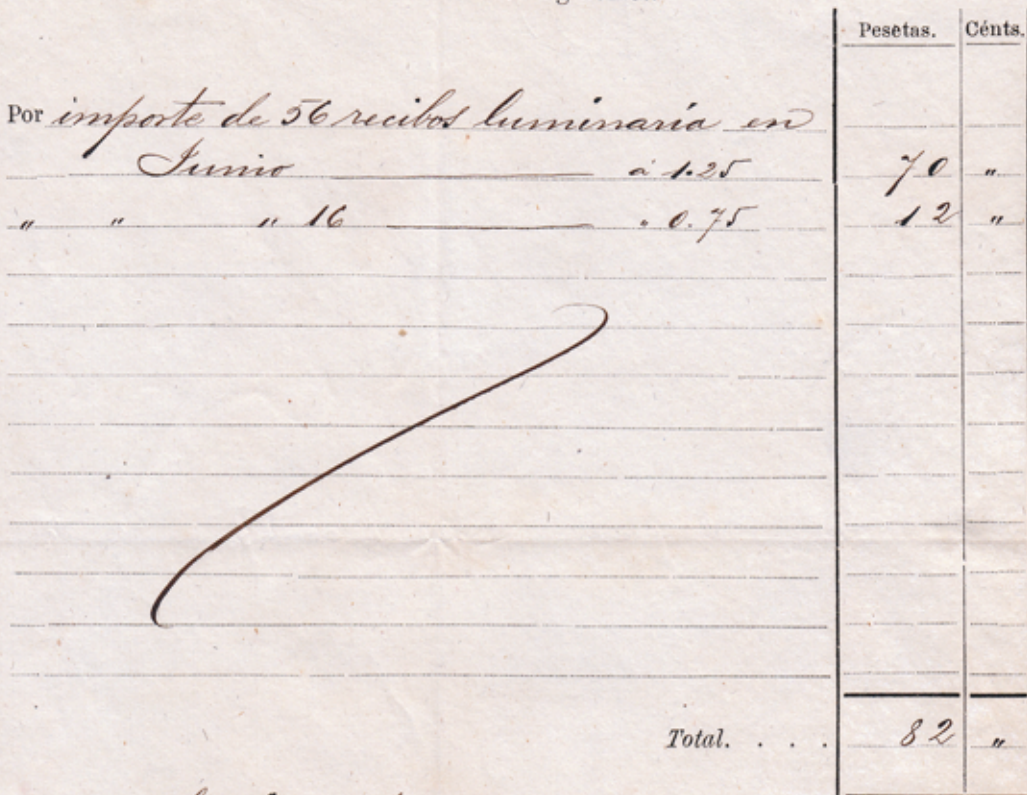 Pesetas. Cénts.
Por importe de 56 recibos luminaria en
Junio á 1.25 70 "
" " " 16 " 0.75 12 "
Total. . . . 82 "